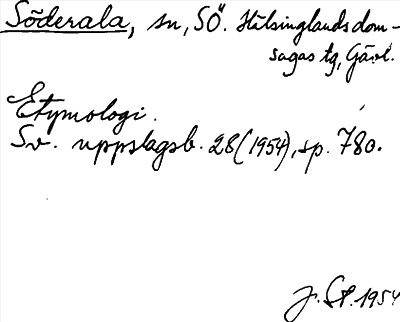 Söderala, sn, SÖ. Hälsinglands dom-
sagas tg, Gävl.
Etymologi.
Sv. uppslagsb. 28 (1954), sp. 780.
J. St. 1954